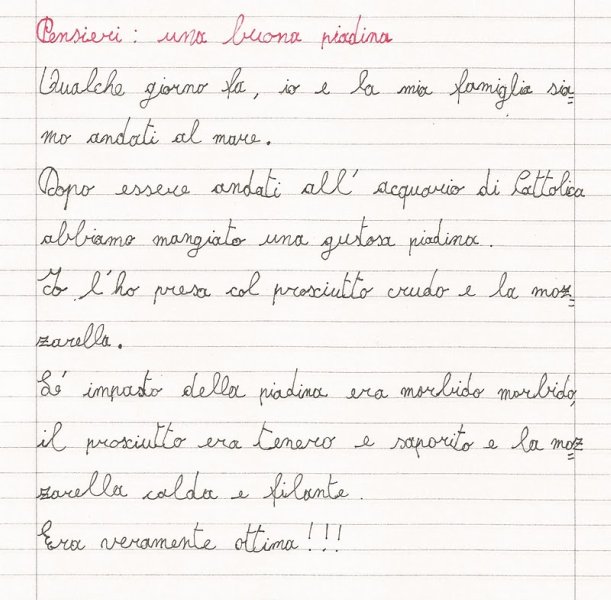 Pensieri: una buona piadina
Qualche giorno fa, io e la mia famiglia sia=
mo andati al mare.
Dopo essere andati all' acquario di Cattolica
abbiamo mangiato una gustosa piadina.
Io l'ho presa col prosciutto crudo e la moz=
zarella.
L' impasto della piadina era morbido morbido,
il prosciutto era tenero e saporito e la moz=
zarella calda e filante.
Era veramente ottima!!!